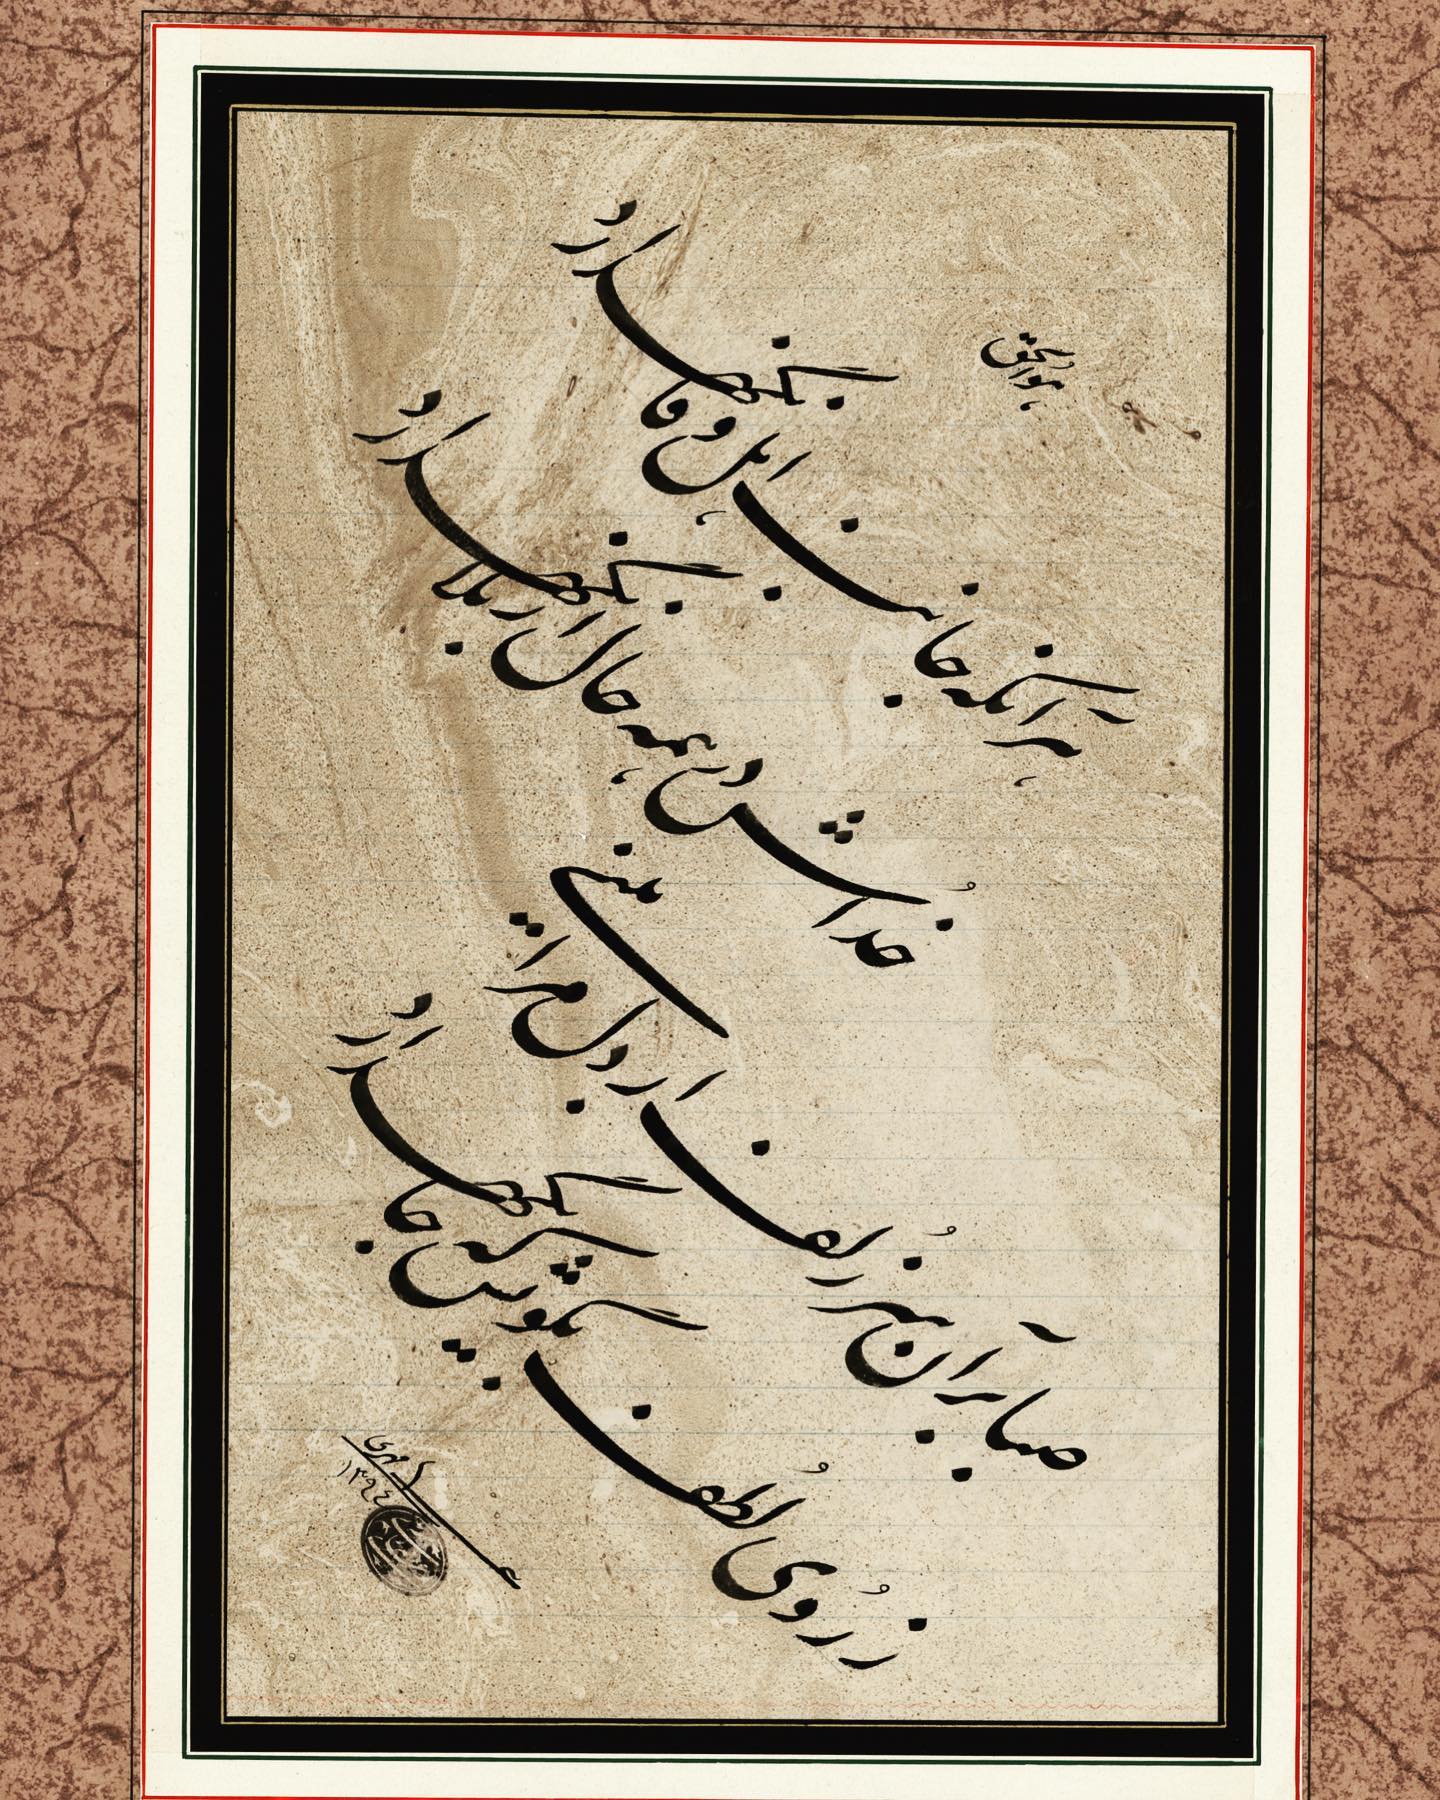 هوالحق
هر آنکه جانب اهل وفا نگهدارد
خُداش در همه حال از بلا نگهدارد
صبا بر آن سَر زُلف ار دل مرا بینی
ز رُوی لُطف بگویش که جا نگهدارد
۱۳۹۴